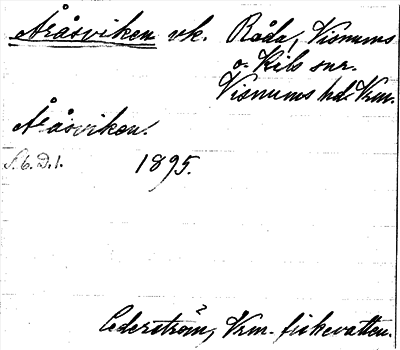 Åråsviken vk. Råda, Visnums
o. Kils snr.
Visnums hd. Vrm.
Åråsviken.
S. 6. D. 1. 1895.
Cederström, Vrm. fiskevatten.